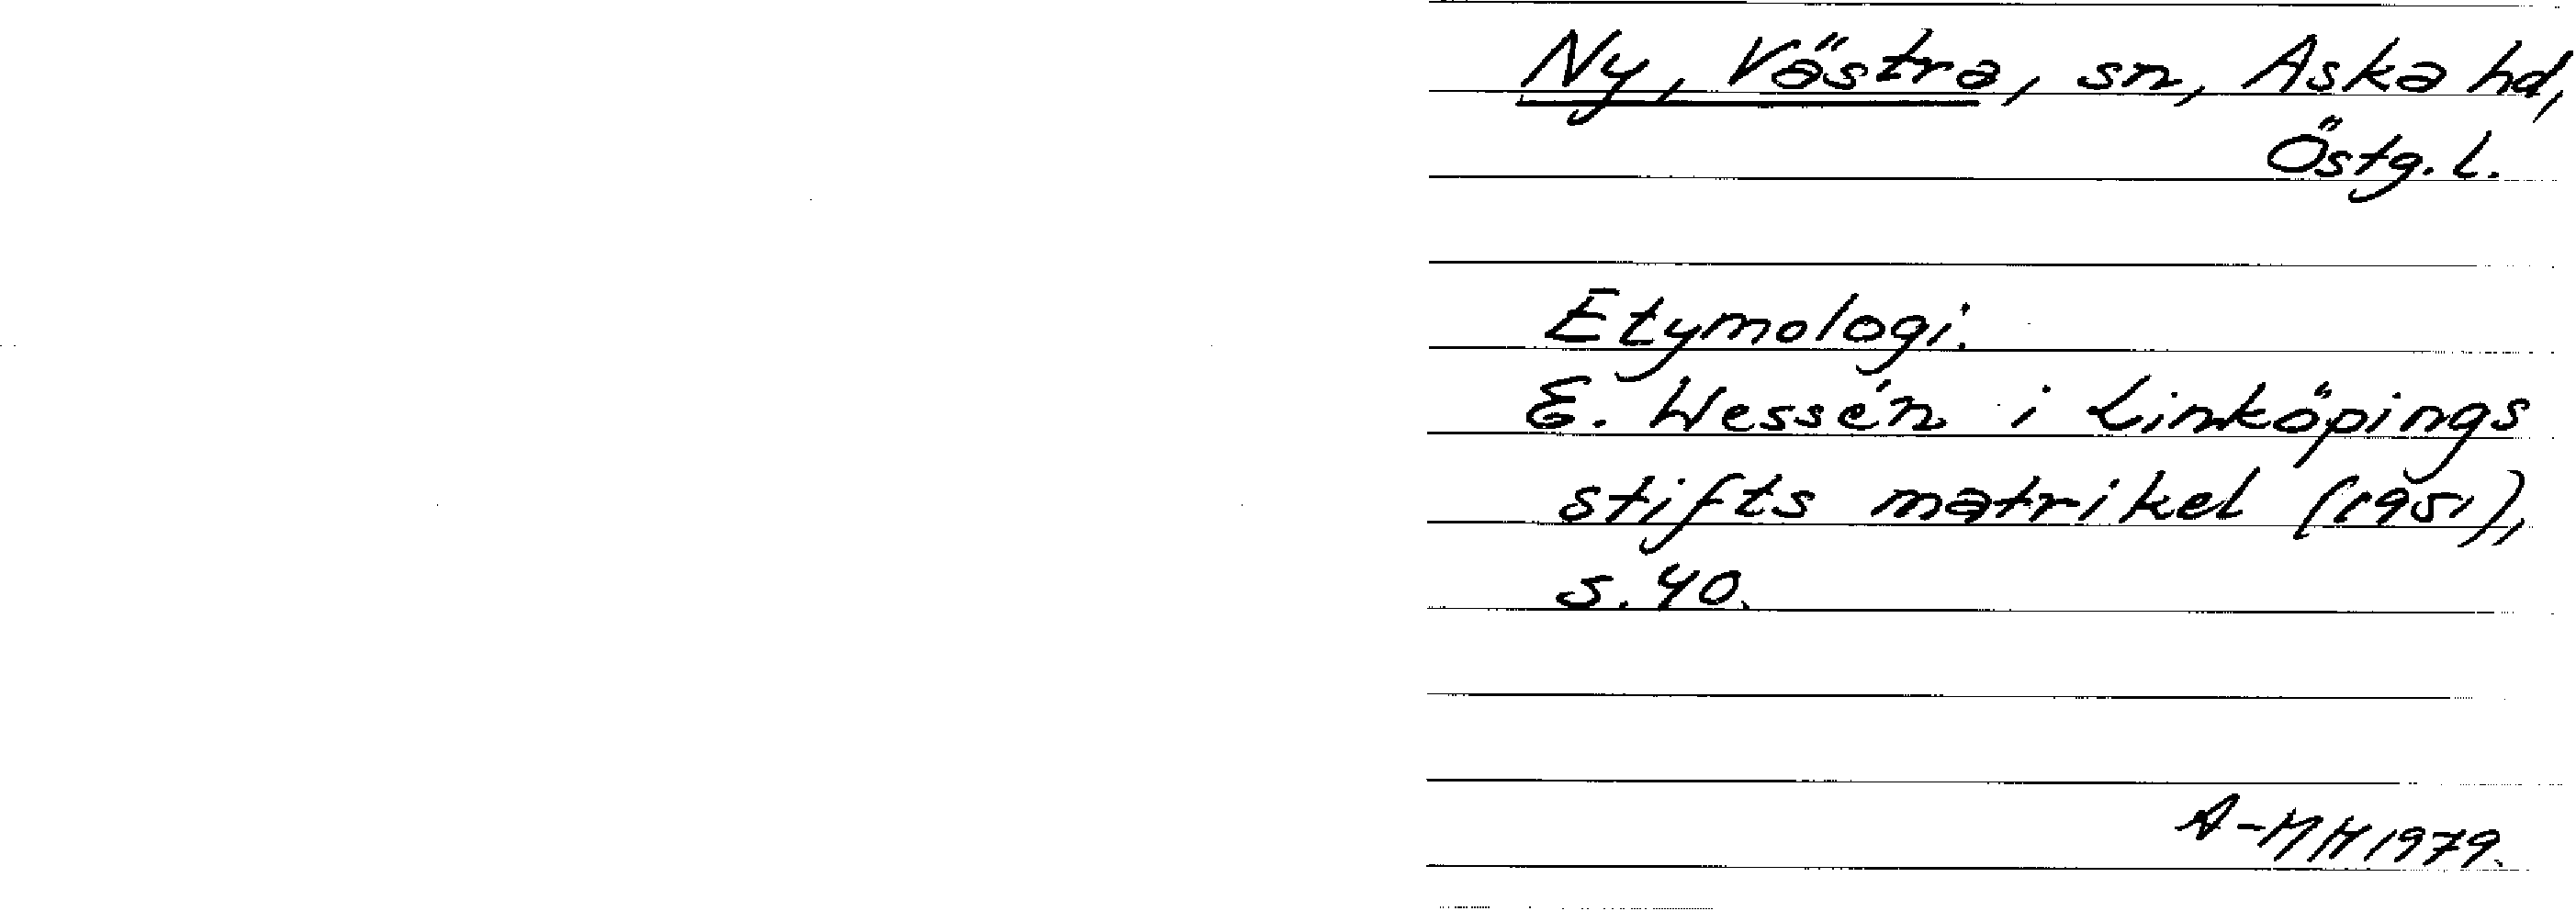 Ny, Västra, sn, Aska hd,
Östg. l.
Etymologi.
E. Wessén i Linköpings
stifts matrikel (1951),
s. 40.
A-MH 1979.